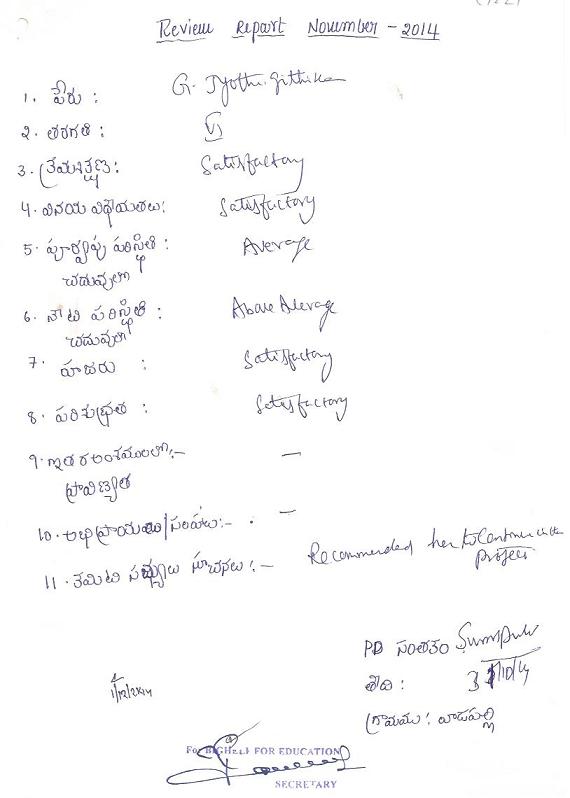 Review Repart November - 2014
1. పేరు : G. Jyothi.githika
2. తరగతి : VI
3. క్రమశిక్షణ : Satisfactory
4. వినయ విధేయతలు : Satisfactory
5. పూర్వపు పరిస్థితి : Average
చదువులో
6. నాటి పరిస్థితి : Above Average
చదువులో
7. హాజరు : Satisfactory
8. పరిశుభ్రత : Satisfactory
9. ఇతర అంశములలో :- —
ప్రావీణ్యత
10. అభిప్రాయము/సలహాలు :- . —
11. కమిటి సభ్యులు సూచనలు :- Recommended her to Continue in the
project
PD సంతకం
తేది : 31/10/14
గ్రామము : వాడపల్లి
1/12/2014
FOR EDUCATION
SECRETARY